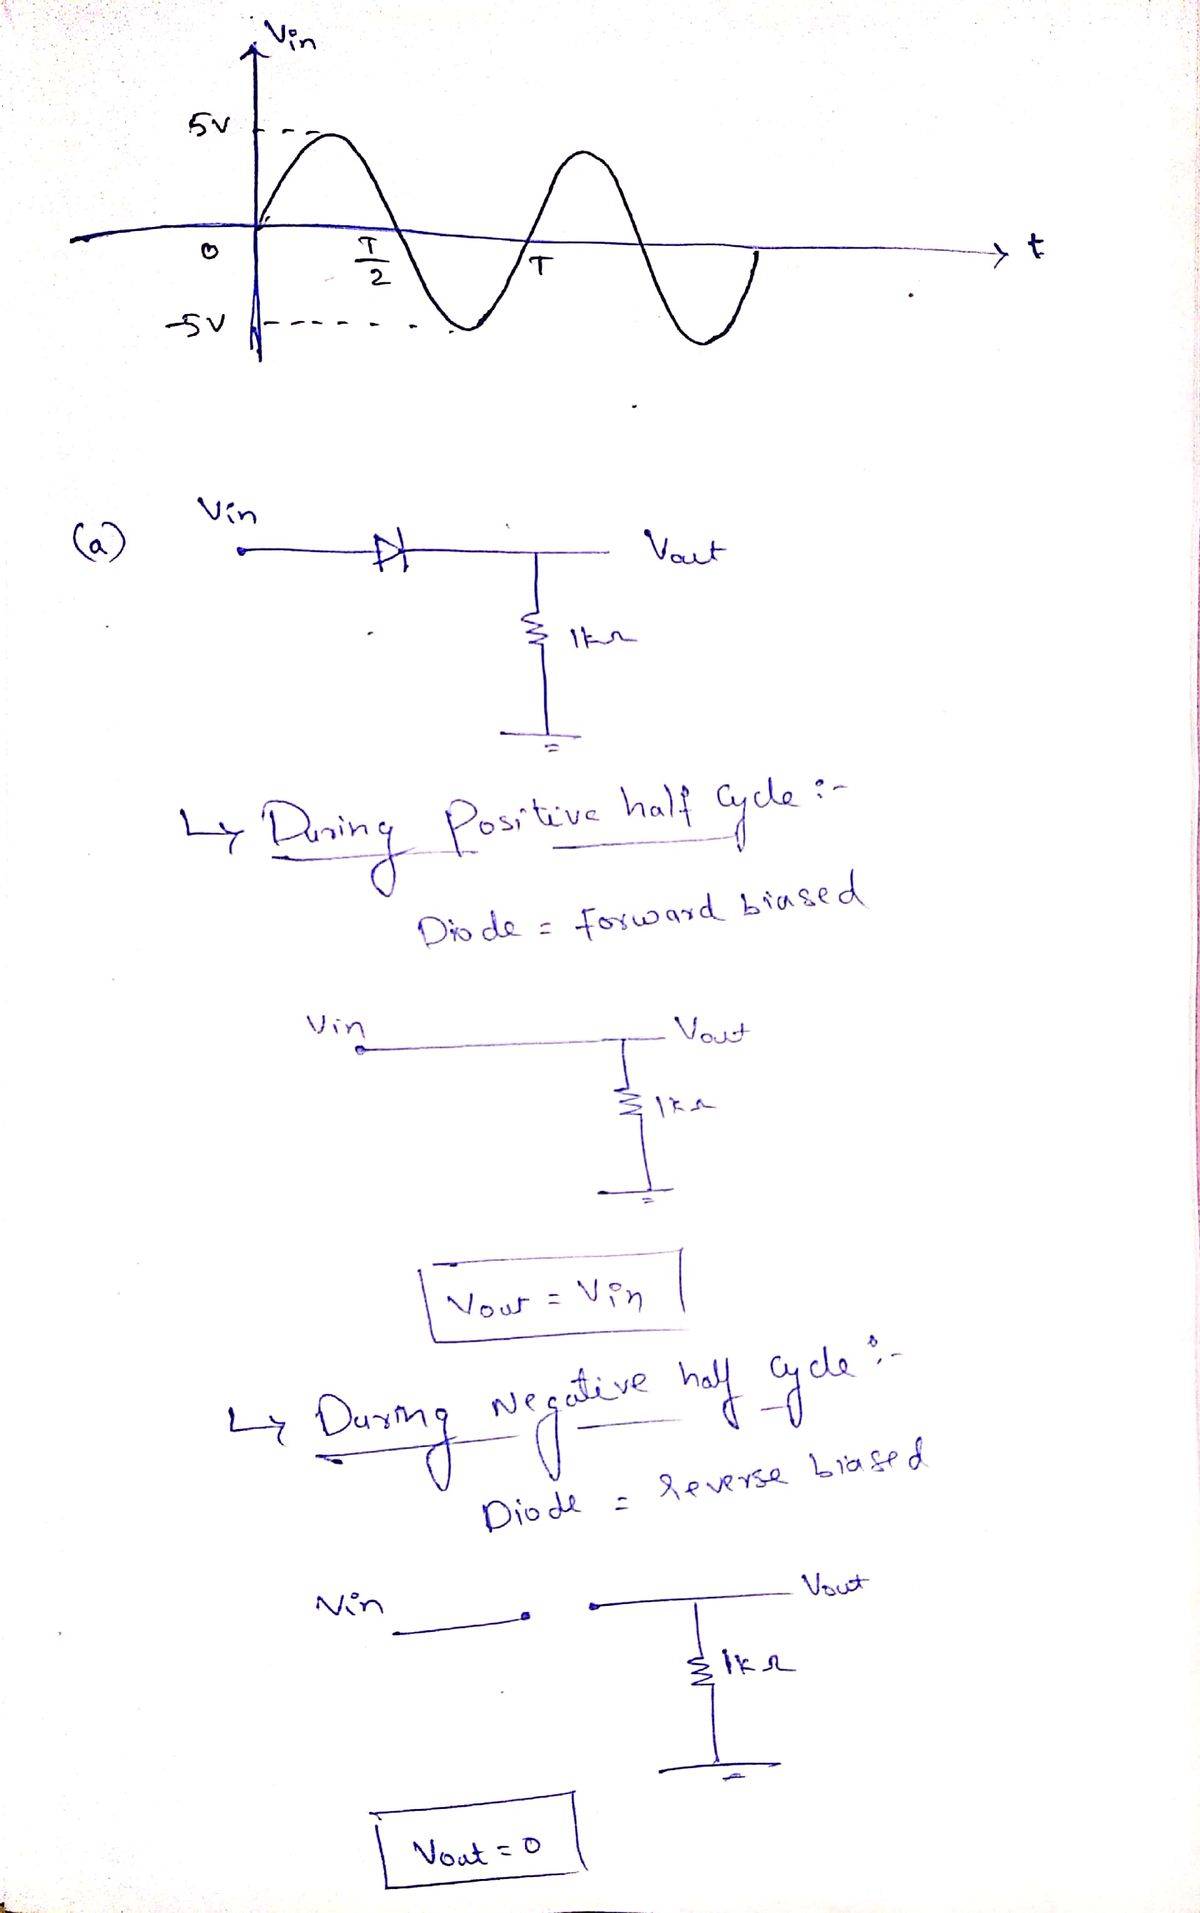 Vin
5V
0
T/2
T
t
-5V
(a)
Vin
Vout
1kΩ
↳ During Positive half Cycle :-
Diode = forward biased
Vin
Vout
1kΩ
Vout = Vin
↳ During Negative half cycle :-
Diode = reverse biased
Vin
Vout
1kΩ
Vout = 0